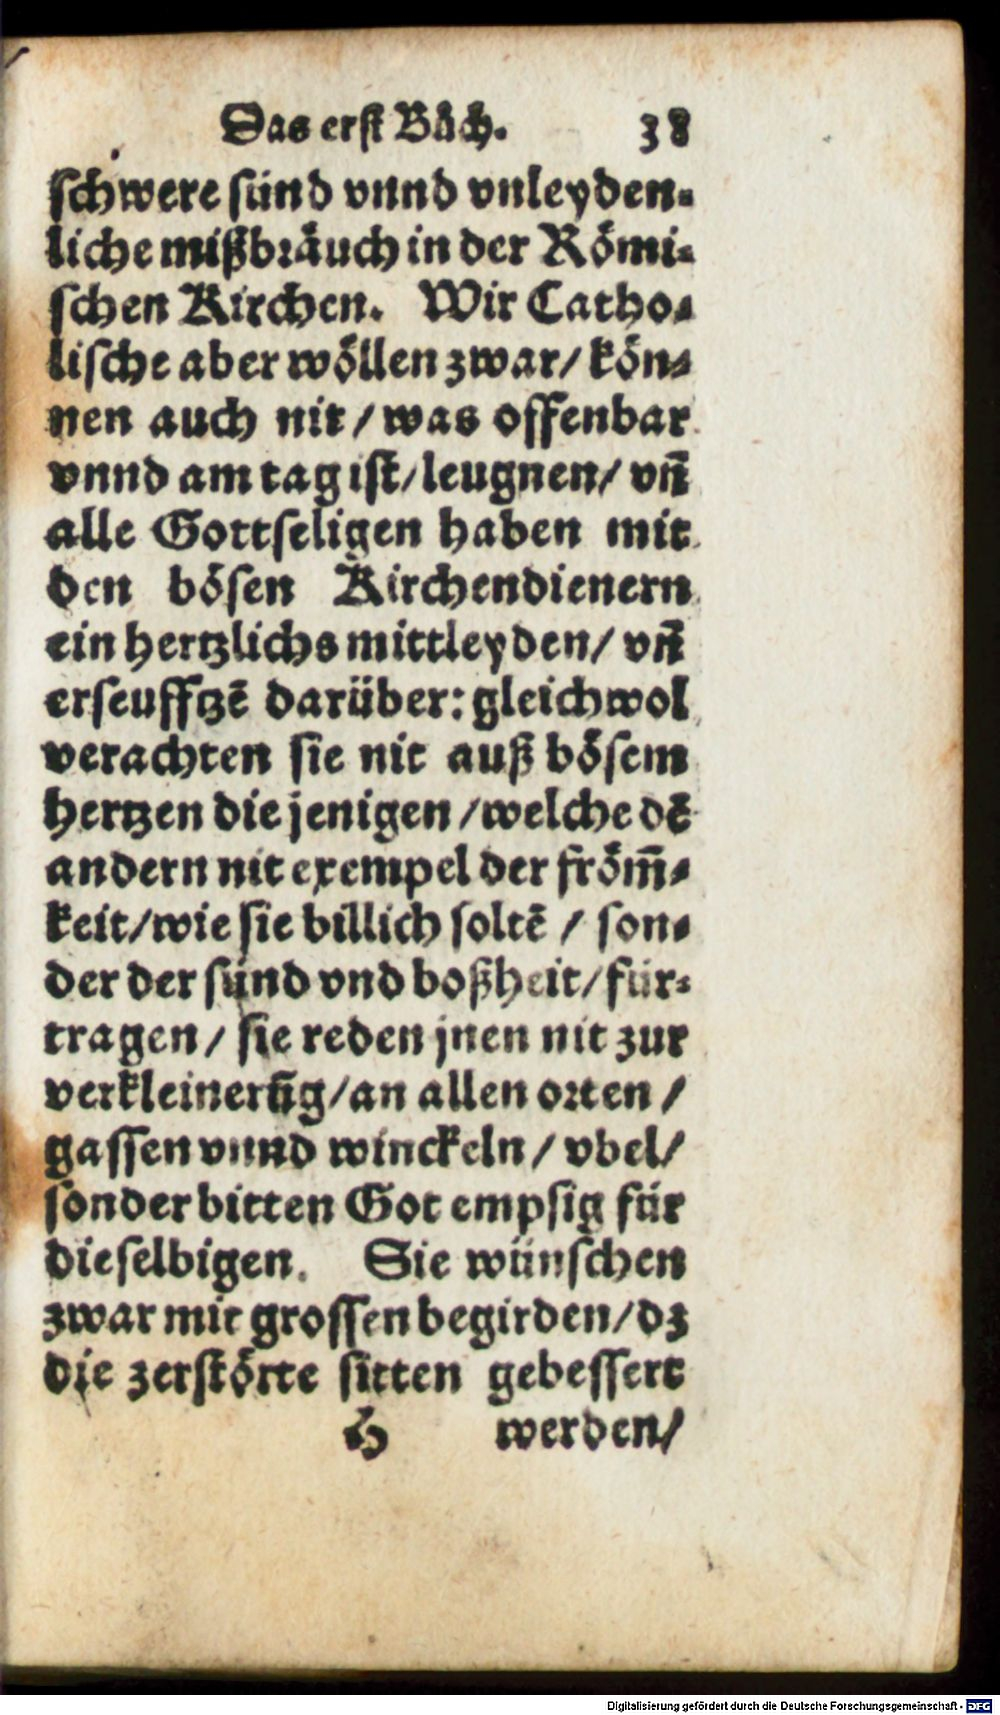 Das erst Bůch. 38
schwere sünd vnnd vnleyden-
liche mißbräuch in der Römi-
schen Kirchen. Wir Catho-
lische aber wöllen zwar/ kön-
nen auch nit / was offenbar
vnnd am tag ist/ leugnen/ vñ
alle Gottseligen haben mit
den bösen Kirchendienern
ein hertzlichs mittleyden/ vñ
erseufftzẽ darüber: gleichwol
verachten sie nit auß bösem
hertzen die jenigen / welche dẽ
andern nit exempel der fröm̃-
keit/ wie sie billich soltẽ / son-
der der sünd vnd boßheit/ für-
tragen / sie reden jnen nit zur
verkleinerũg/ an allen orten /
gassen vnnd winckeln / vbel/
sonder bitten Got empsig für
dieselbigen. Sie wünschen
zwar mit grossen begirden/ dz
die zerstörte sitten gebessert
H werden/
Digitalisierung gefördert durch die Deutsche Forschungsgemeinschaft - DFG